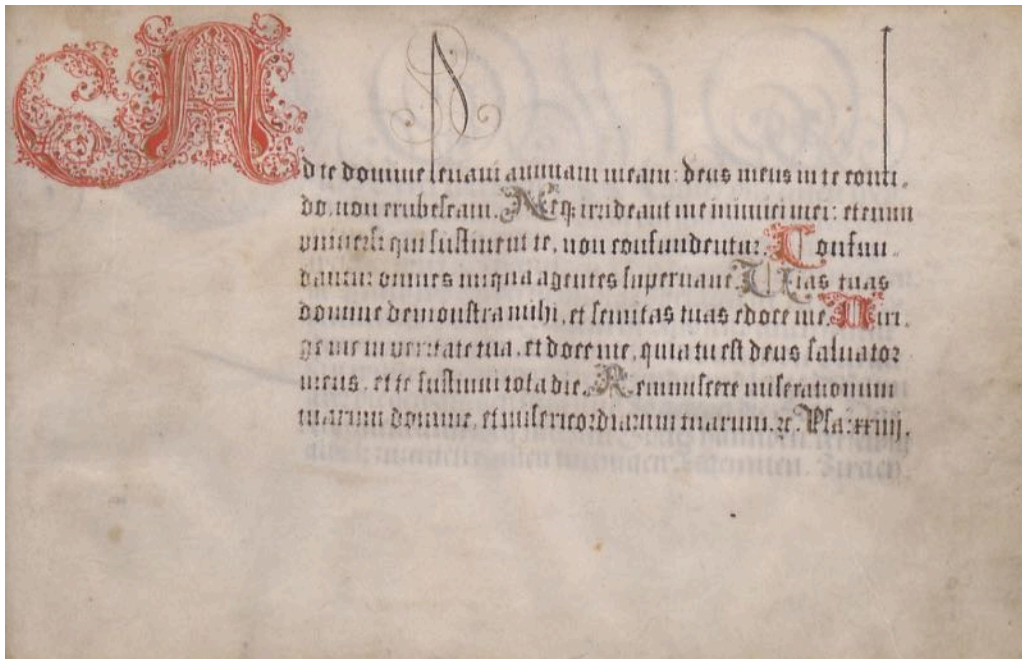 Ad te domine leuaui animam meam: deus meus in te confi.
do, non erubescam. Neq; irrideant me inimici mei: etenim
vniuersi qui sustinent te, non confundentur. Confun.
dantur omnes iniqua agentes superuane. Vias tuas
domine demonstra mihi, et semitas tuas edoce me. Diri.
ge me in veritate tua, et doce me, quia tu est deus saluator
meus, et te sustinui tota die. Reminiscere miserationum
tuarum domine, et misericordiarum tuarum. ꝛc. Psa: xxiiij.